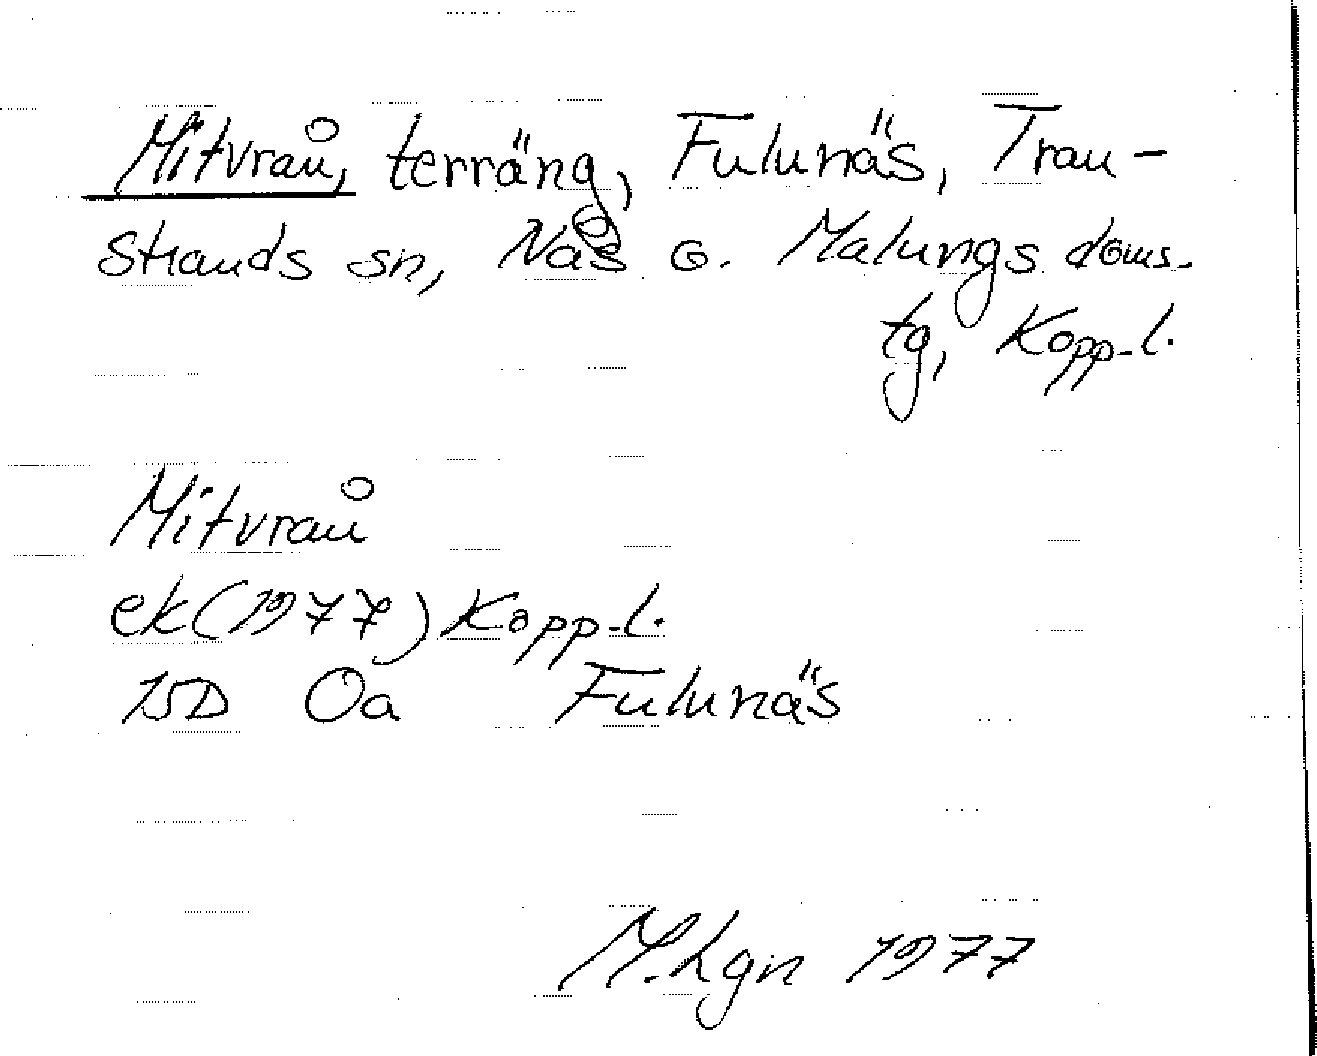 Mitvråu, terräng, Fulunäs, Tran-
strands sn, Nås o. Malungs doms-
tg, Kopp. l.
Mitvråu
ek (1977) Kopp. l.
15D Oa Fulunäs
M. Lgn 1977